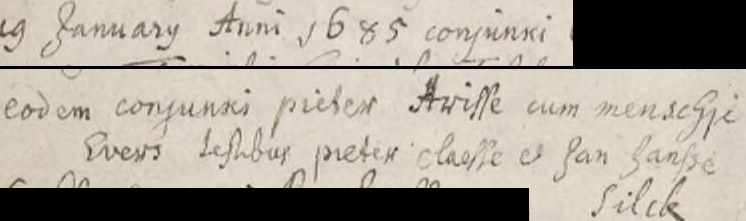 29 January Anni 1685 conjunxi
eodem conjunxi pieter Arisse cum menschje
Evers testibus pieter claesse et Jan Janssē
Silck